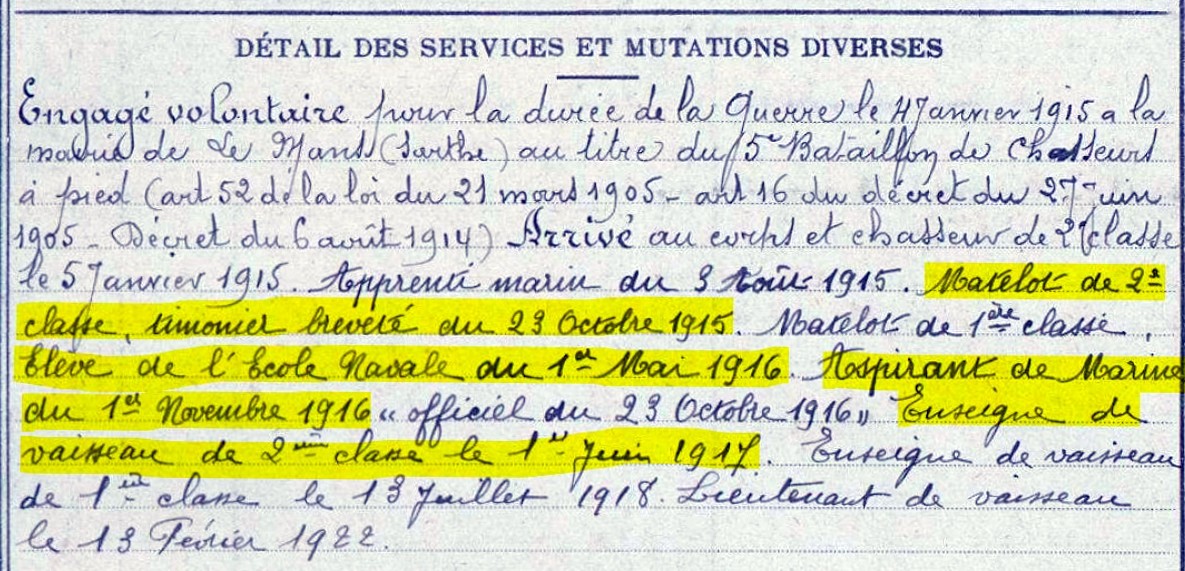 DÉTAIL DES SERVICES ET MUTATIONS DIVERSES
Engagé volontaire pour la durée de la Guerre le 4 Janvier 1915 a la
mairie de Le Mans (Sarthe) au titre du 5e Bataillon de Chasseurs
à pied (art 52 de la loi du 21 mars 1905 - art 16 du décret du 27 juin
1905 - Décret du 6 août 1914) Arrivé au corps et chasseur de 2e classe
le 5 Janvier 1915. Apprenti marin du 3 Août 1915. Matelot de 2e
classe, timonier breveté du 23 Octobre 1915. Matelot de 1ère classe,
Elève de l'Ecole Navale du 1er Mai 1916. Aspirant de Marine
du 1er Novembre 1916 « officiel du 23 Octobre 1916 » Enseigne de
vaisseau de 2ème classe le 1er Juin 1917. Enseigne de vaisseau
de 1ère classe le 13 Juillet 1918. Lieutenant de vaisseau
le 13 Février 1922.